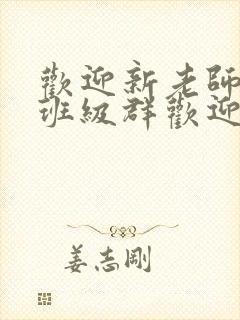 歡迎新老師
班級群歡迎
姜志剛